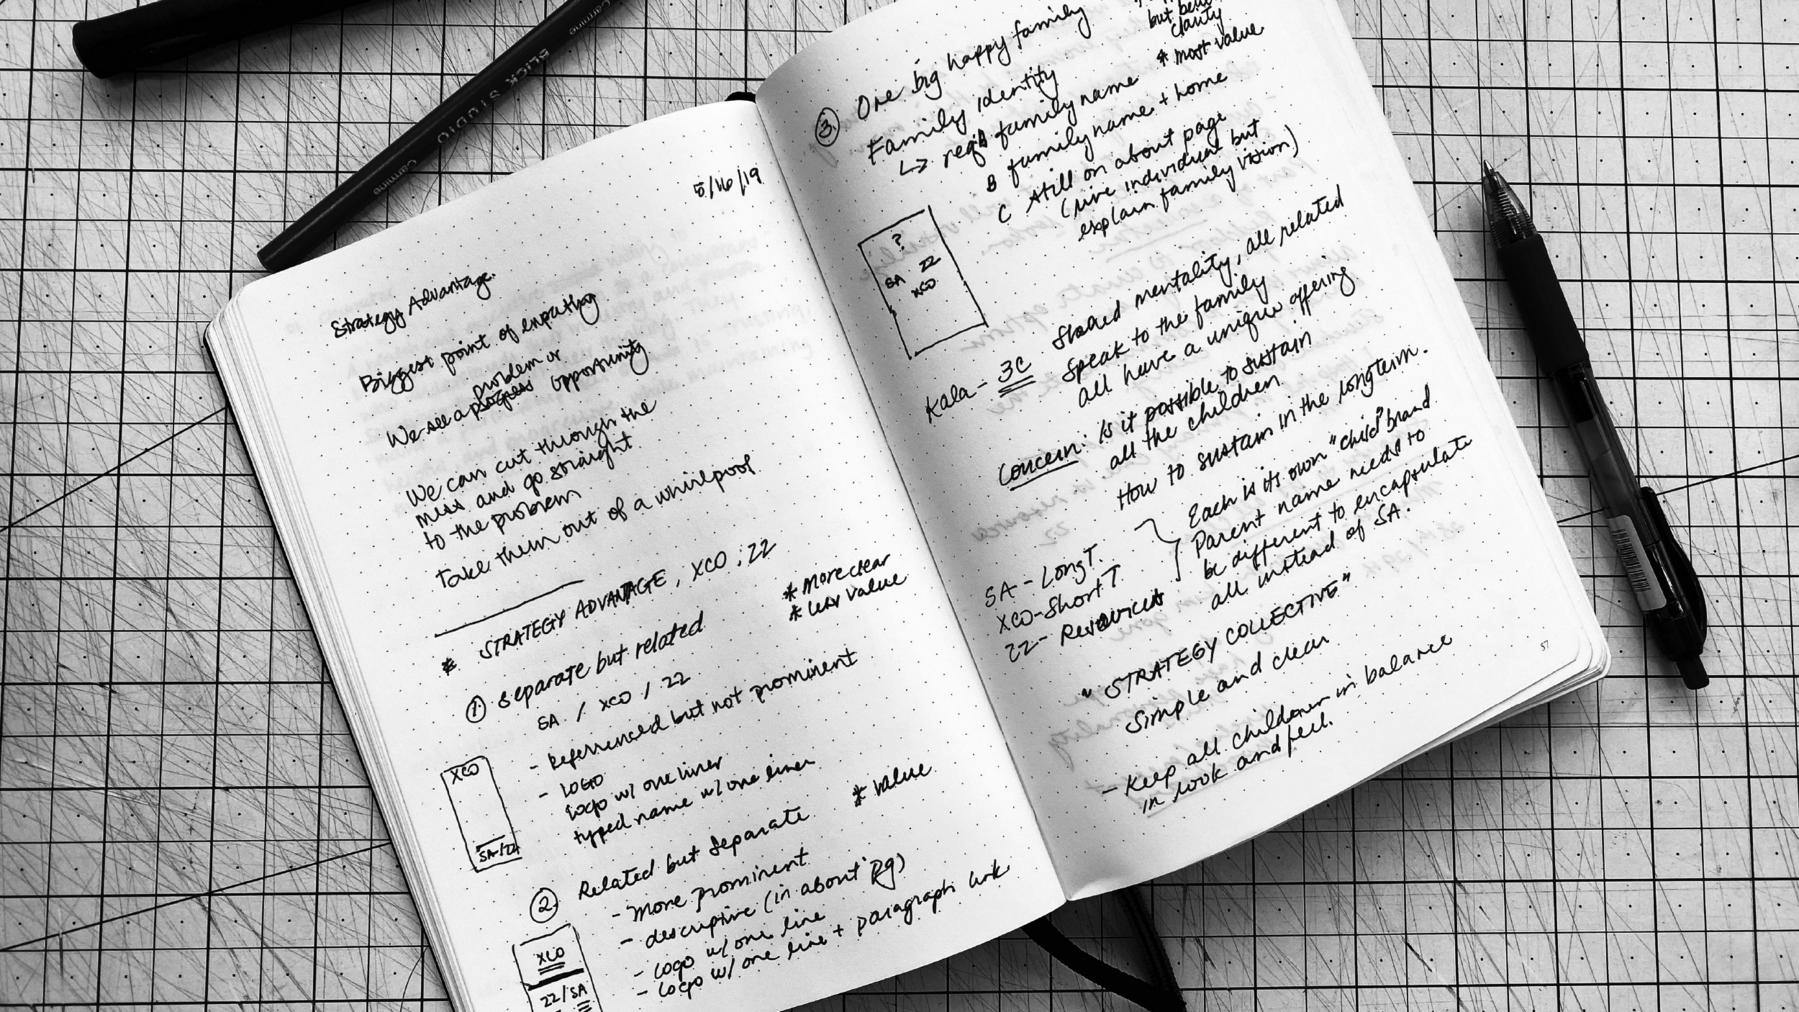 5/16/19
Strategy Advantage.
Biggest point of empathy
problem or
We see a progress opportunity
We can cut through the
mess and go straight
to the problem
take them out of a whirlpool
* STRATEGY ADVANTAGE, XCO, 22
* More clear
* Less value
1. Separate but related
SA / XCO / 22
- Referenced but not prominent
- LOGO
logo w/ one liner
typed name w/ one liner
XCO
SA/22
2. Related but Separate
* value
- More prominent
- descriptive (in about pg)
- logo w/ one line
- logo w/ one line + paragraph link
XCO
22/SA
3. One big happy family
but
clarity
* most value
Family identity
↳ req's family name
B family name + home
C still on about page
(live individual but
explain family vision)
?
SA 22
XCO
Kala - 3C
Shared mentality, all related
Speak to the family
all have a unique offering
Concern: Is it possible to sustain
all the children
How to sustain in the longterm.
SA - Long T.
XCO - Short T
22 - Resources
Each is its own "child" brand
Parent name needs to
be different to encapsulate
all instead of SA.
"STRATEGY COLLECTIVE"
Simple and clear
- Keep all children in balance
in look and feel.
57
BLICK STUDIO
Carmine
Carmine